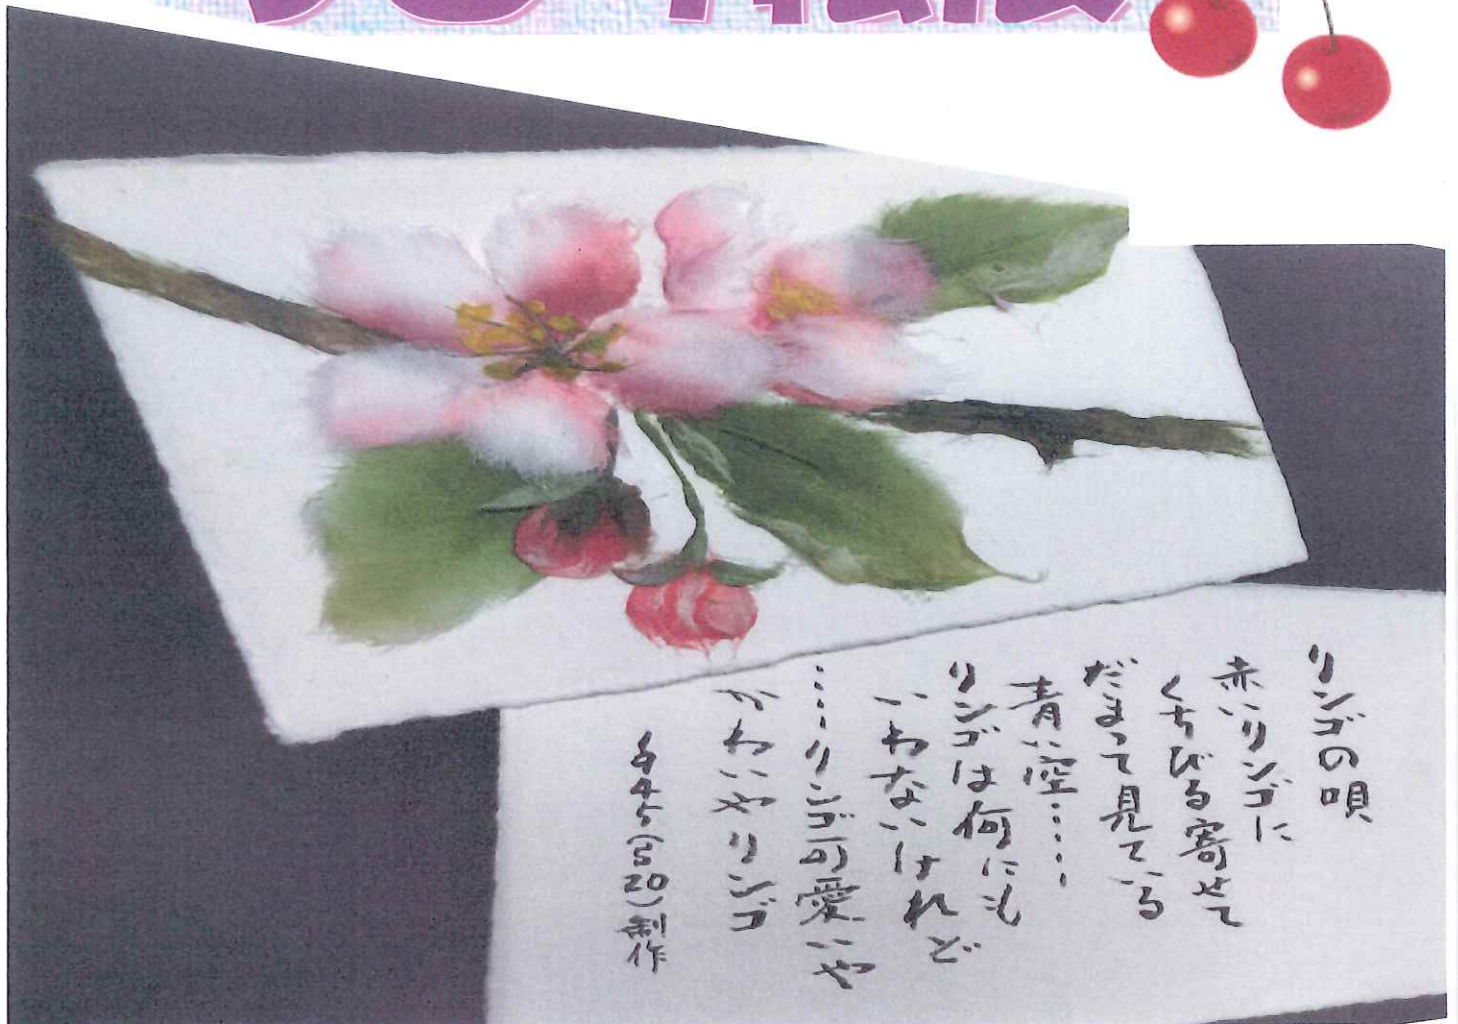 リンゴの唄
赤いリンゴに
くちびる寄せて
だまって見ている
青い空……
リンゴは何にも
いわないけれど
……リンゴ可愛いや
かわいやリンゴ
1945(S20)制作